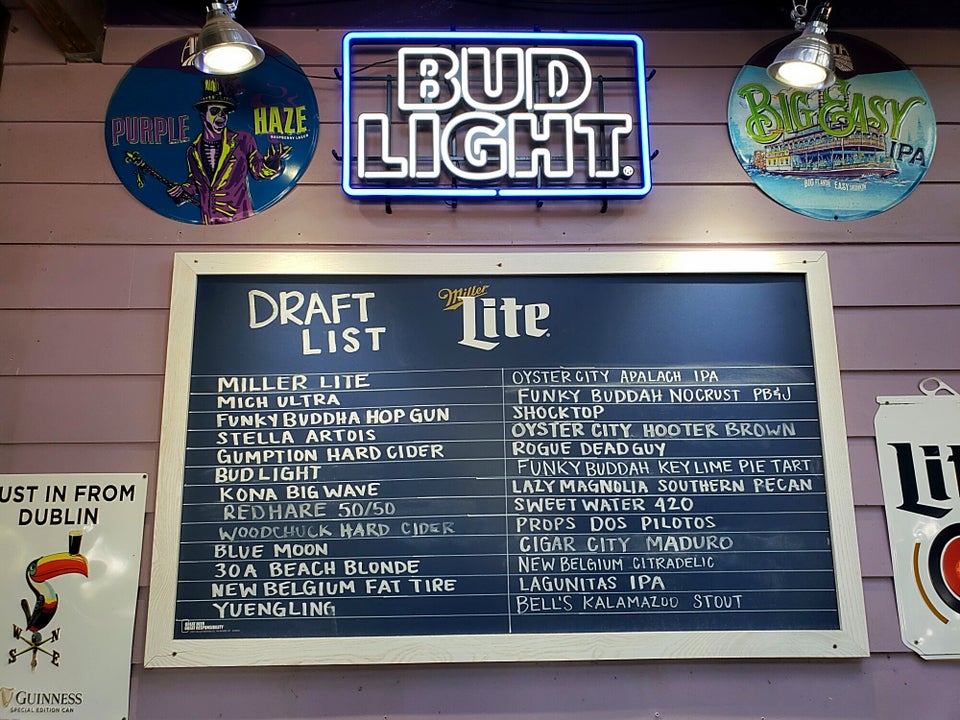 PURPLE HAZE
RASPBERRY LAGER
BUD
LIGHT
BIG EASY
IPA
DRAFT
LIST
Miller
Lite
MILLER LITE
MICH ULTRA
FUNKY BUDDHA HOP GUN
STELLA ARTOIS
GUMPTION HARD CIDER
BUD LIGHT
KONA BIG WAVE
RED HARE 50/50
WOODCHUCK HARD CIDER
BLUE MOON
30A BEACH BLONDE
NEW BELGIUM FAT TIRE
YUENGLING
OYSTER CITY APALACH IPA
FUNKY BUDDAH NOCRUST PB&J
SHOCKTOP
OYSTER CITY HOOTER BROWN
ROGUE DEAD GUY
FUNKY BUDDAH KEY LIME PIE TART
LAZY MAGNOLIA SOUTHERN PECAN
SWEET WATER 420
PROPS DOS PILOTOS
CIGAR CITY MADURO
NEW BELGIUM CITRADELIC
LAGUNITAS IPA
BELL'S KALAMAZOO STOUT
GREAT BEER
GREAT RESPONSIBILITY
UST IN FROM
DUBLIN
N
W
S
E
GUINNESS
SPECIAL EDITION CAN
Lit